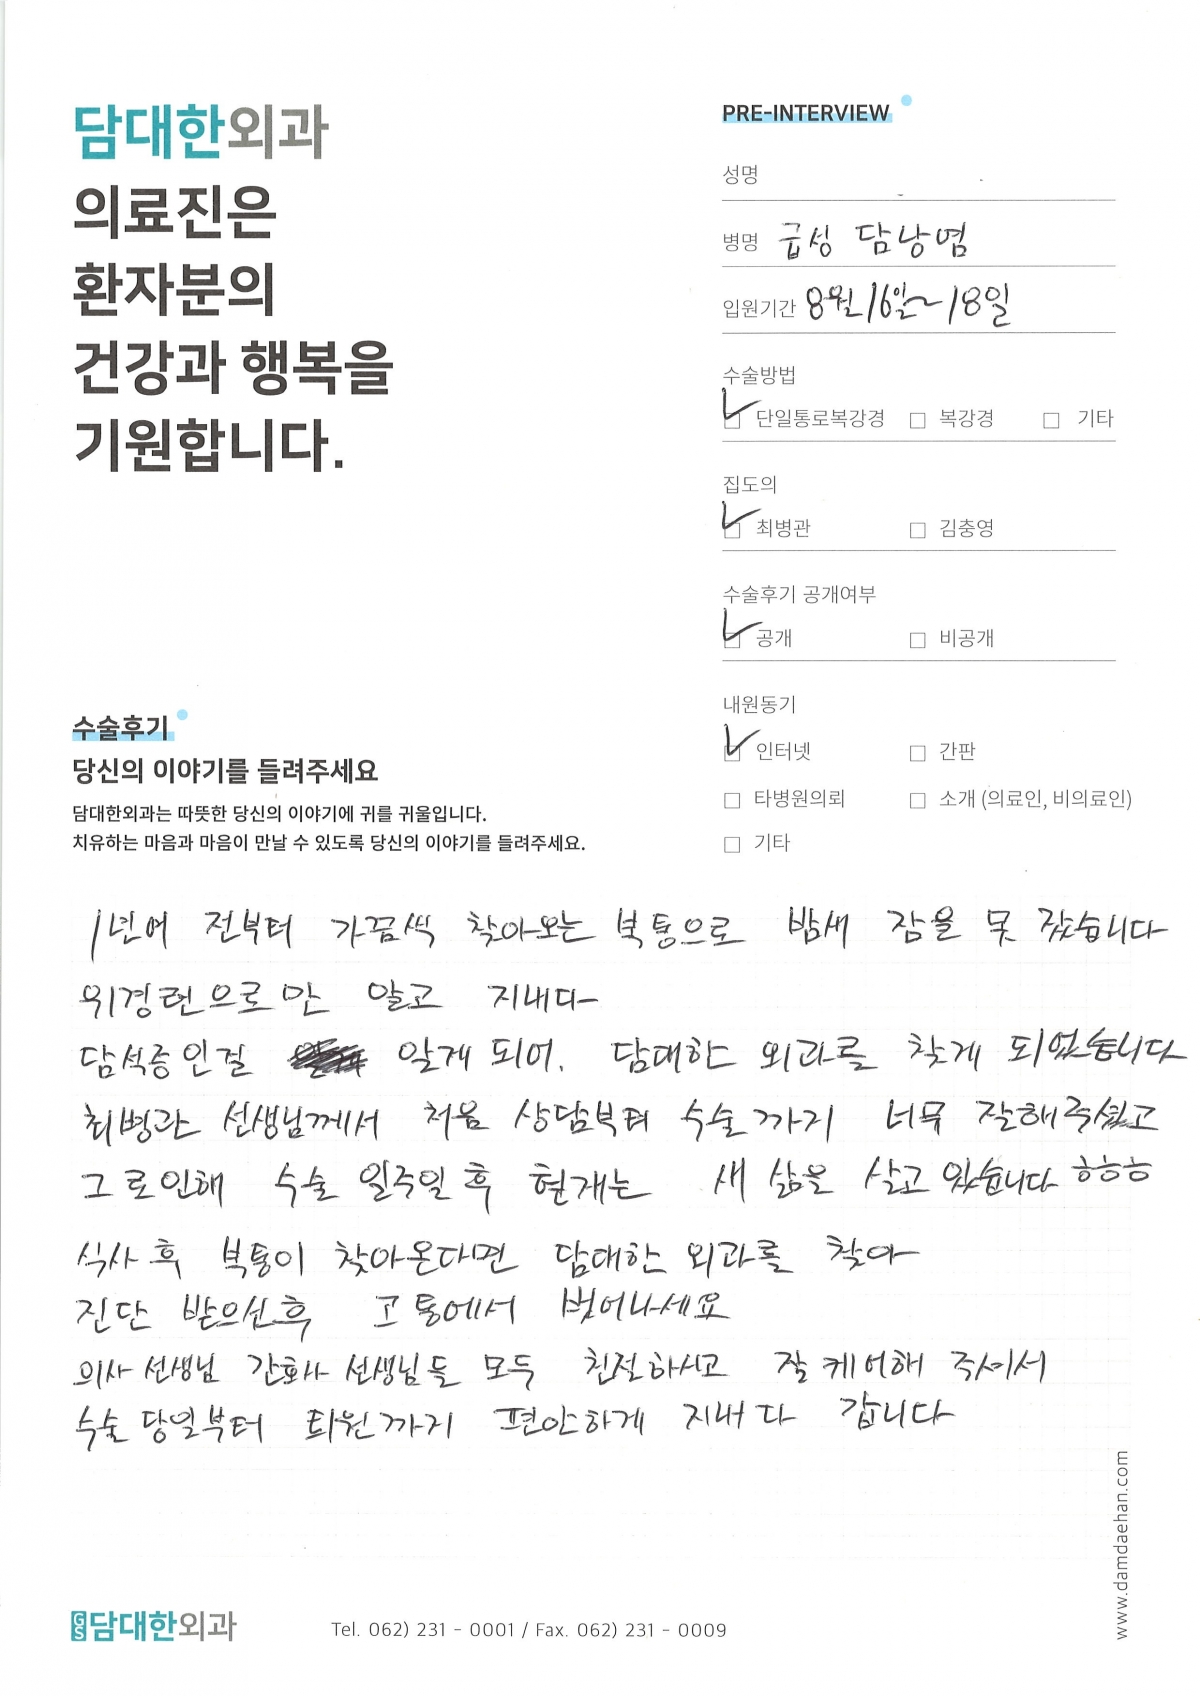 담대한외과
의료진은
환자분의
건강과 행복을
기원합니다.
PRE-INTERVIEW
성명
병명 급성 담낭염
입원기간 8월 16일~18일
수술방법
☑ 단일통로복강경 □ 복강경 □ 기타
집도의
☑ 최병관 □ 김충영
수술후기 공개여부
☑ 공개 □ 비공개
내원동기
☑ 인터넷 □ 간판
□ 타병원의뢰 □ 소개 (의료인, 비의료인)
□ 기타
수술후기
당신의 이야기를 들려주세요
담대한외과는 따뜻한 당신의 이야기에 귀를 귀울입니다.
치유하는 마음과 마음이 만날 수 있도록 당신의 이야기를 들려주세요.
1년여 전부터 가끔씩 찾아오는 복통으로 밤새 잠을 못 잤습니다
위경련으로만 알고 지내다
담석증인걸 알게 되어. 담대한 외과를 찾게 되었습니다
최병관 선생님께서 처음 상담부터 수술까지 너무 잘해주셨고
그로인해 수술 일주일 후 현재는 새 삶을 살고 있습니다 ㅎㅎㅎ
식사 후 복통이 찾아온다면 담대한 외과를 찾아
진단 받으신후 고통에서 벗어나세요
의사 선생님 간호사 선생님들 모두 친절하시고 잘 케어해 주셔서
수술 당일부터 퇴원까지 편안하게 지내다 갑니다
www.damdaehan.com
GS담대한외과
Tel. 062) 231 - 0001 / Fax. 062) 231 - 0009